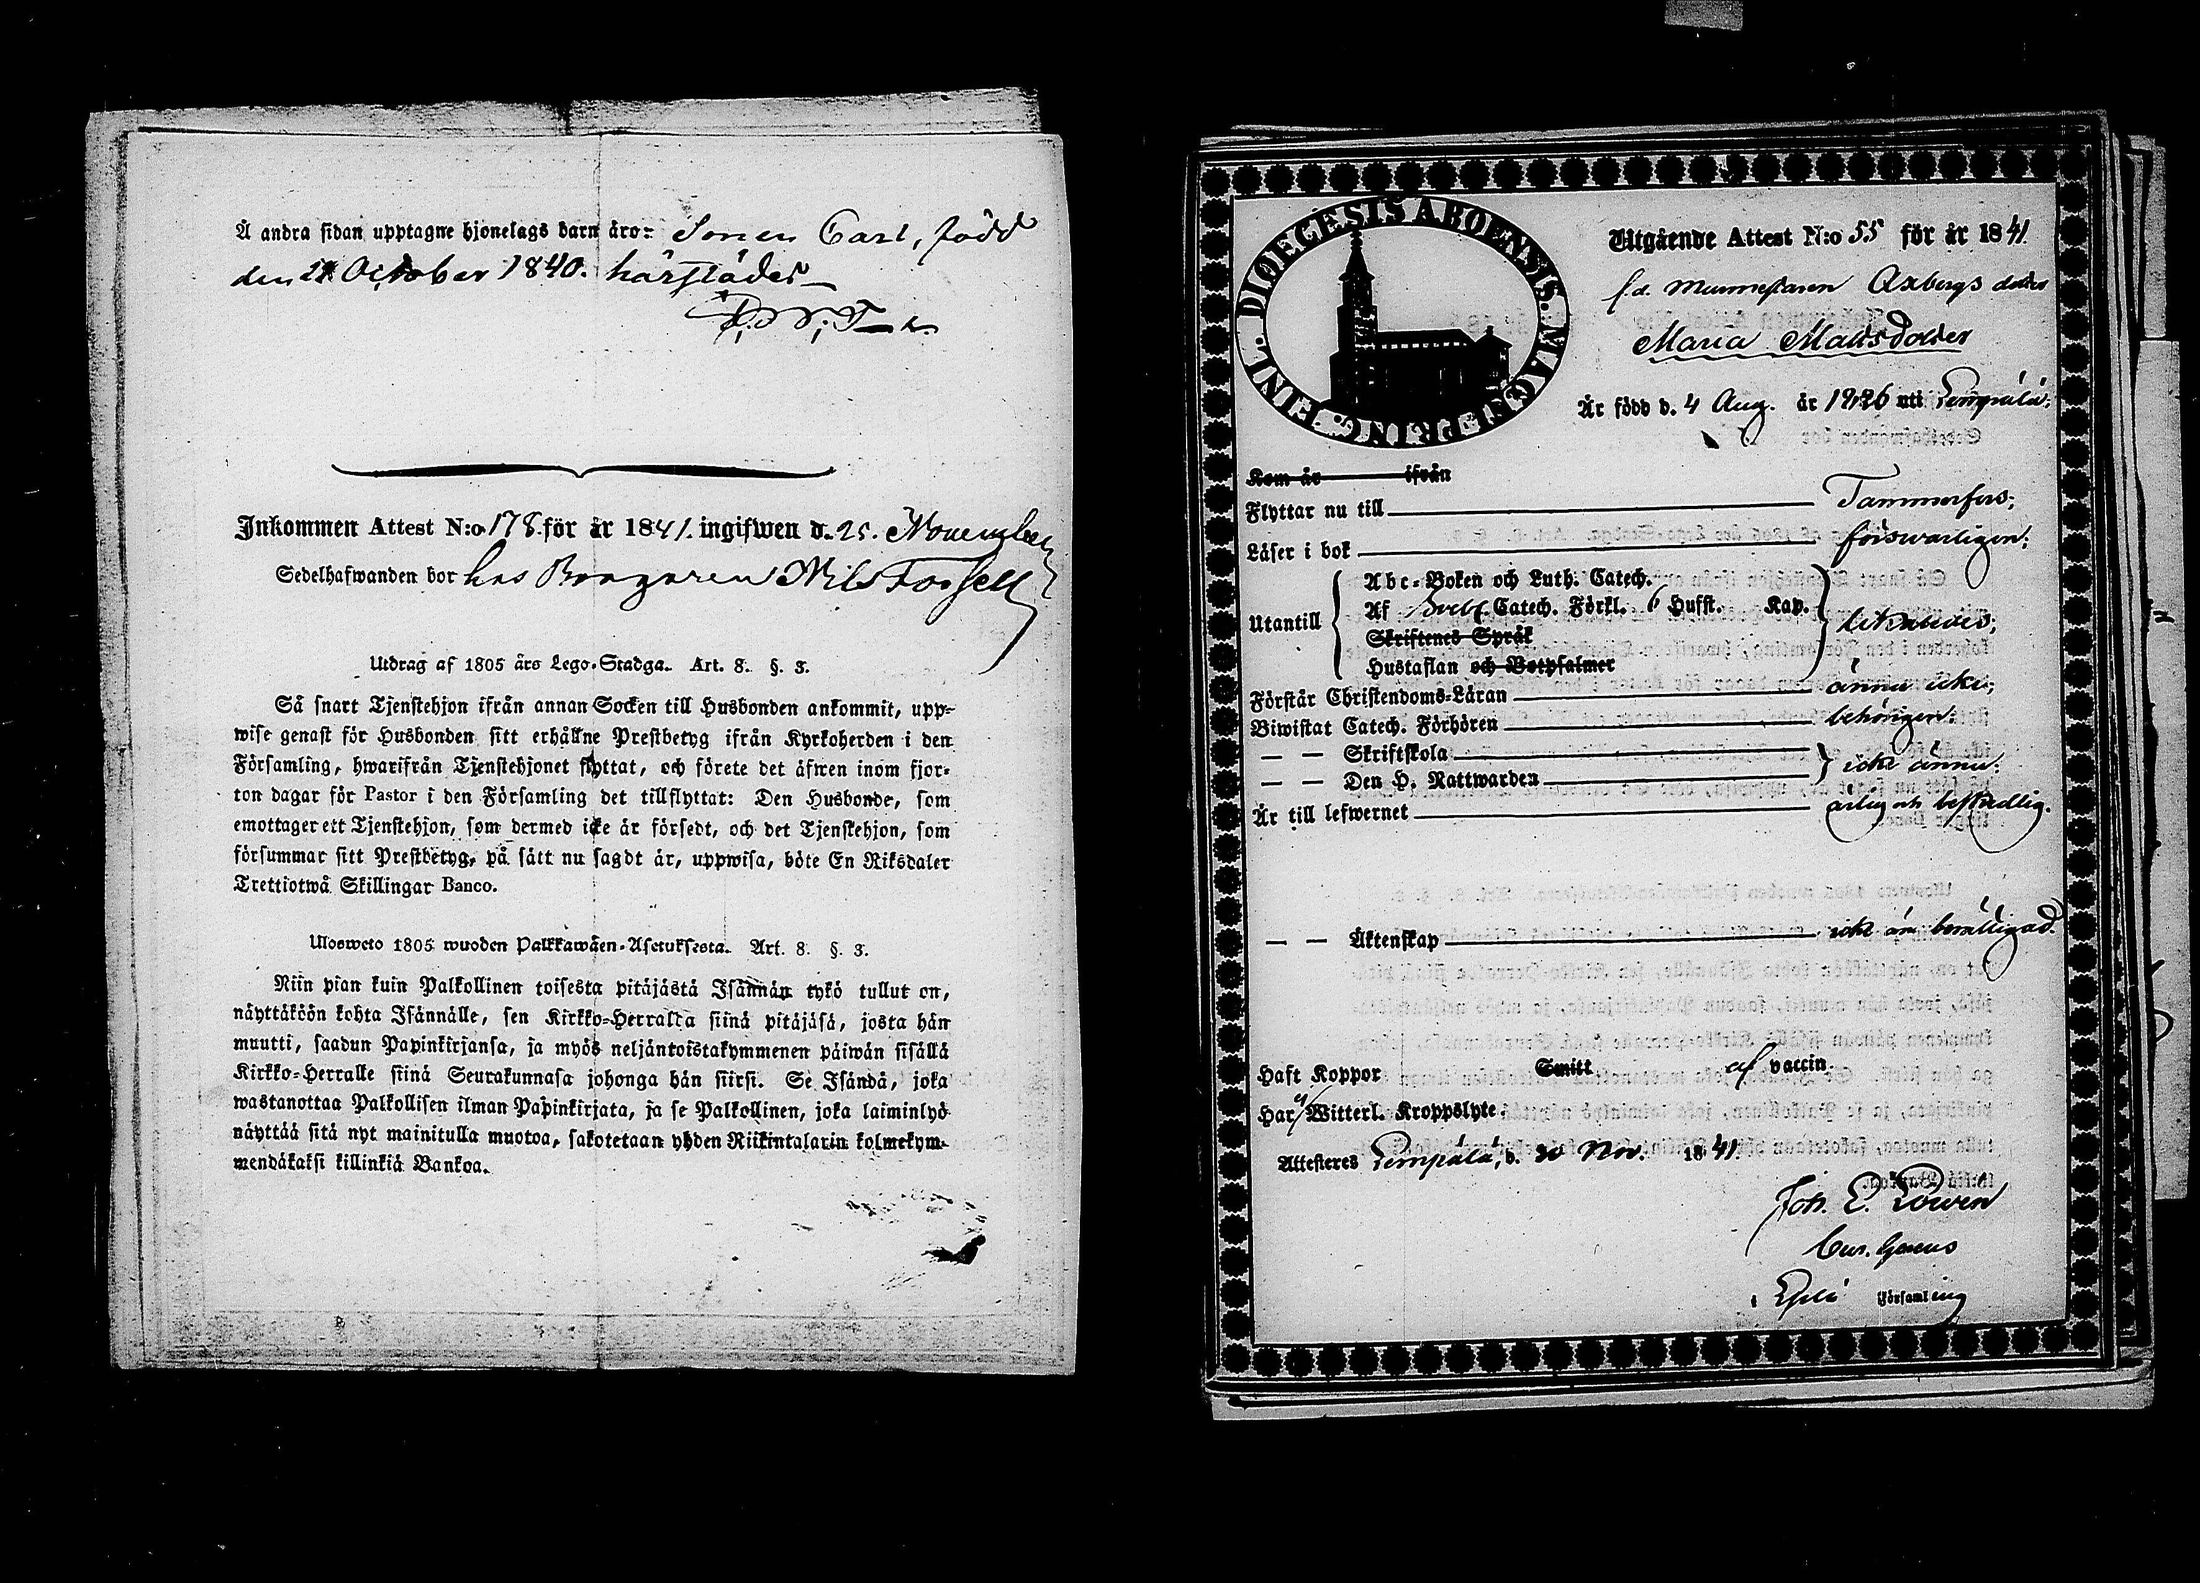 Å andra sidan upptagne hjonelags barn äro: Sonen Carl, född
den 21 October 1840. härstädes
Inkommen Attest N:o 178 för år 1841. ingifwen d. 25. November
Sedelhafwanden bor hos Borgaren Nils Forsell
Utdrag af 1805 års Lego-Stadga. Art. 8. §. 3.
Så snart Tjenstehjon ifrån annan Socken till Husbonden ankommit, upp-
wise genast för Husbonden sitt erhållne Prestbetyg ifrån Kyrkoherden i den
Församling, hwarifrån Tjenstehjonet flyttat, och förete det äfwen inom fjor-
ton dagar för Pastor i den Församling det tillflyttat: Den Husbonde, som
emottager ett Tjenstehjon, som dermed icke är försedt, och det Tjenstehjon, som
försummar sitt Prestbetyg, på sätt nu sagdt är, uppwisa, böte En Riksdaler
Trettiotwå Skillingar Banco.
Ulosweto 1805 wuoden Palkkawäen-Asetuksesta. Art. 8. §. 3.
Niin pian kuin Palkollinen toisesta pitäjästä Isännän tykö tullut on,
näyttäköön kohta Isännälle, sen Kirkko-Herralta siinä pitäjäsä, josta hän
muutti, saadun Papinkirjansa, ja myös neljäntoistakymmenen päiwän sisällä
Kirkko-Herralle siinä Seurakunnasa johonga hän siirsi. Se Isändä, joka
wastanottaa Palkollisen ilman Papinkirjata, ja se Palkollinen, joka laiminlyö
näyttää sitä nyt mainitulla muotoa, sakotetaan yhden Riikintalarin kolmekym-
mendäkaksi killinkiä Bankoa.
DIOECESIS ABOENSIS. MAGNI PRINC. FINL.
Utgående Attest N:o 55 för år 1841
f.d. Axbergs dotter
Maria Mattsdotter
Är född d. 4 Aug. år 1826 uti Lempälä;
Kom år ifrån
Flyttar nu till Tammerfors;
Läser i bok försvarligen;
Utantill
Abc-Boken och Luth. Catech.
Af Sveb. Catech. Förkl. 6 Hufst. Kap.
Skriftenes Språk
Hustaflan och Botpsalmer
likaledes;
Förstår Christendoms-Läran ännu icke;
Biwistat Catech. Förhören behörigen;
— — Skriftskola
— — Den H. Nattwarden
icke ännu;
Är till lefwernet ärlig och beskedlig.
— — Äktenskap icke än berättigad.
Haft Koppor Smitt af vaccin.
Har ej Witterl. Kroppslyte.
Attesteres Lempälä, d. 20 Nov. 1841
Joh. E.
Cur. Gerens
i församling